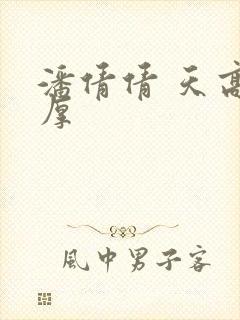 潘倩倩 天高
厚
風中男子客